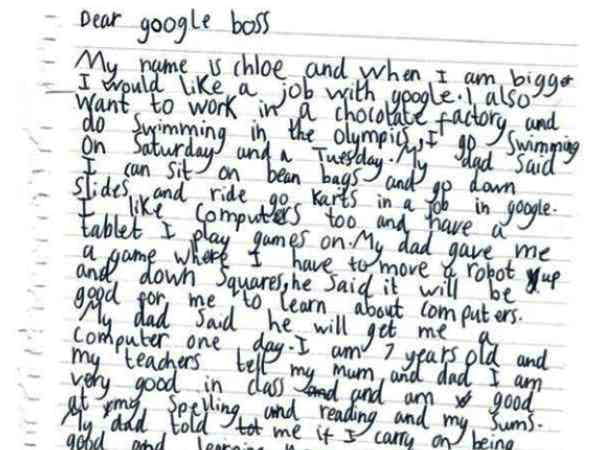 Dear google boss
My name is chloe and when I am bigger
I would like a job with google. I also
want to work in a chocolate factory and
do swimming in the olympics, I go swimming
on Saturday and a Tuesday. My dad said
I can sit on bean bags and go down
slides and ride go karts in a job in google.
I like computers too and have a
tablet I play games on. My dad gave me
a game where I have to move a robot up
and down squares, he said it will be
good for me to learn about computers.
My dad said he will get me a
computer one day. I am 7 years old and
my teachers tell my mum and dad I am
very good in class and am good
at my spelling and reading and my sums.
My dad told me if I carry on being
good and learning